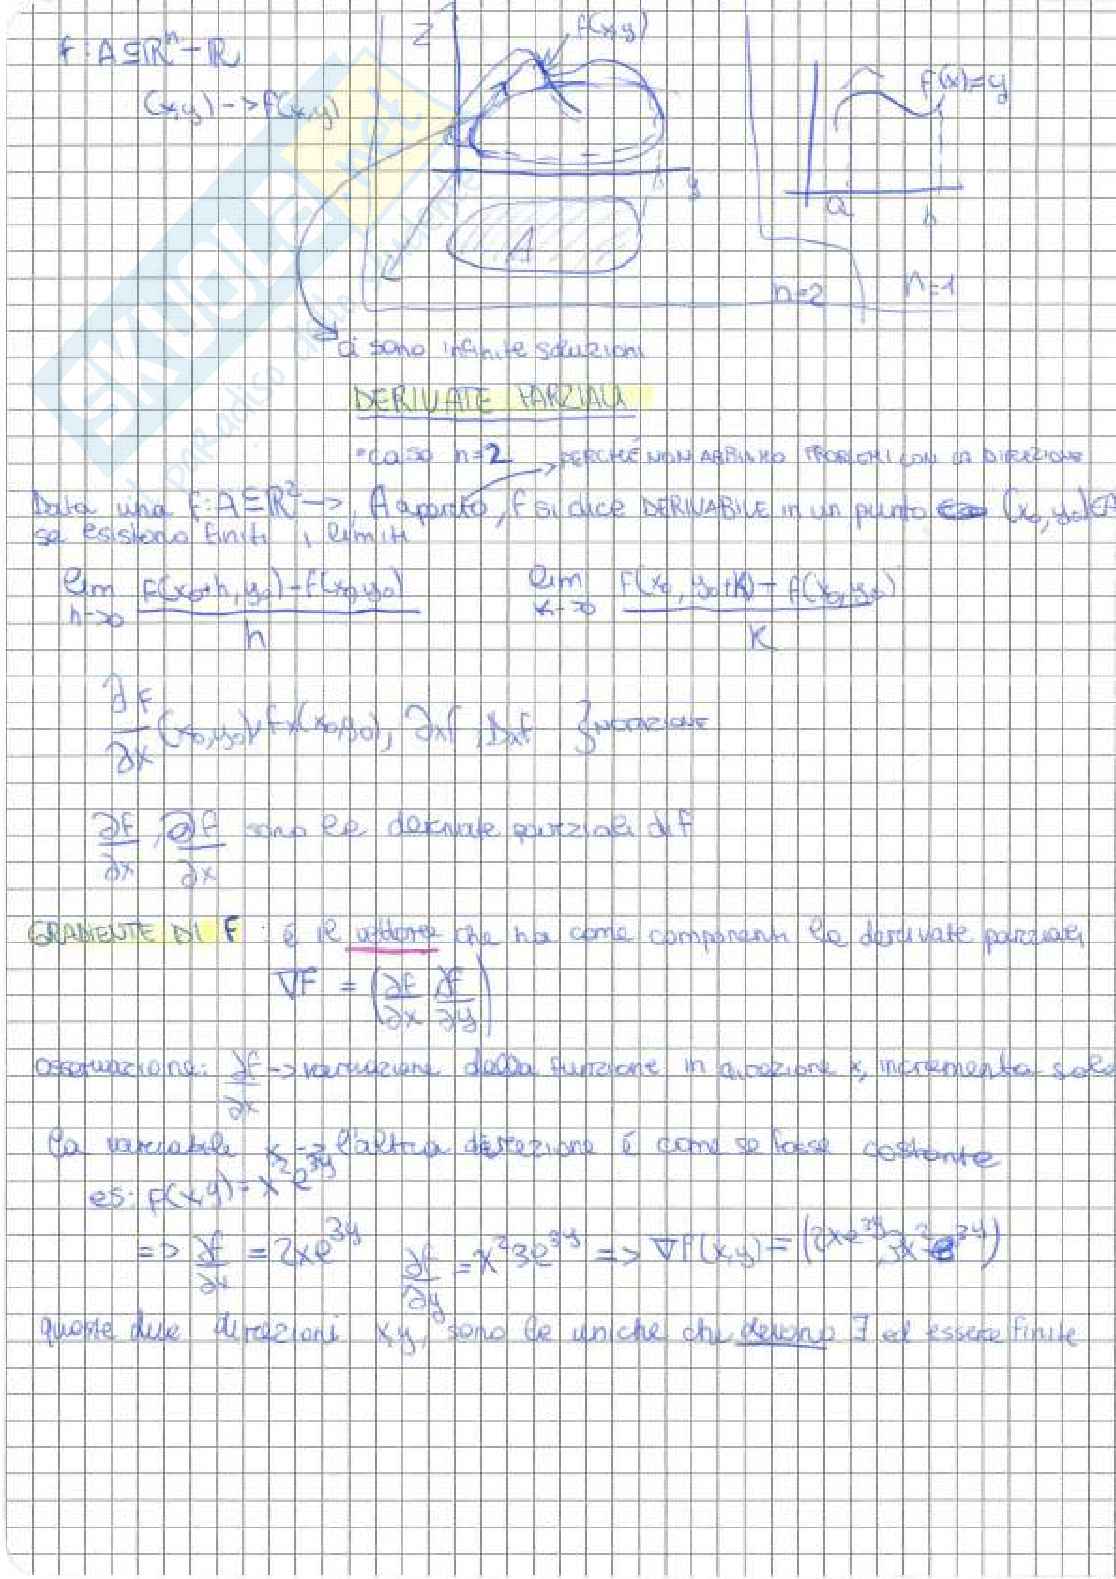 f: A ⊆ ℝⁿ - ℝ
(x,y) -> f(x,y)
z
f(x,y)
y
A
n=2
f(x)=y
a
b
n=1
ci sono infinite soluzioni
DERIVATE PARZIALI
• caso n=2
PERCHÉ NON ABBIAMO PROBLEMI CON LA DIREZIONE
Data una f: A ⊆ ℝ² ->, A aperto, f si dice DERIVABILE in un punto (x₀,y₀)∈A
se esistono finiti i limiti
lim h->0 f(x₀+h, y₀) - f(x₀,y₀) / h    lim k->0 f(x₀, y₀+k) - f(x₀,y₀) / k
∂f/∂x (x₀,y₀), fx(x₀,y₀), ∂xf, Dxf } NOTAZIONE
∂f/∂x, ∂f/∂x sono le derivate parziali di f
GRADIENTE DI F : è il vettore che ha come componenti le derivate parziali
∇F = (∂f/∂x ∂f/∂y)
osservazione: ∂f/∂x -> variazione della funzione in direzione x, incrementa solo
la variabile x -> l'altra direzione è come se fosse costante
es: f(x,y) = x² e³ʸ
=> ∂f/∂x = 2xe³ʸ   ∂f/∂y = x²3e³ʸ => ∇f(x,y) = (2xe³ʸ, 3x²e³ʸ)
queste due direzioni x,y, sono le uniche che devono ∃ ed essere finite
SKUOLA.net
il paradiso dello studente